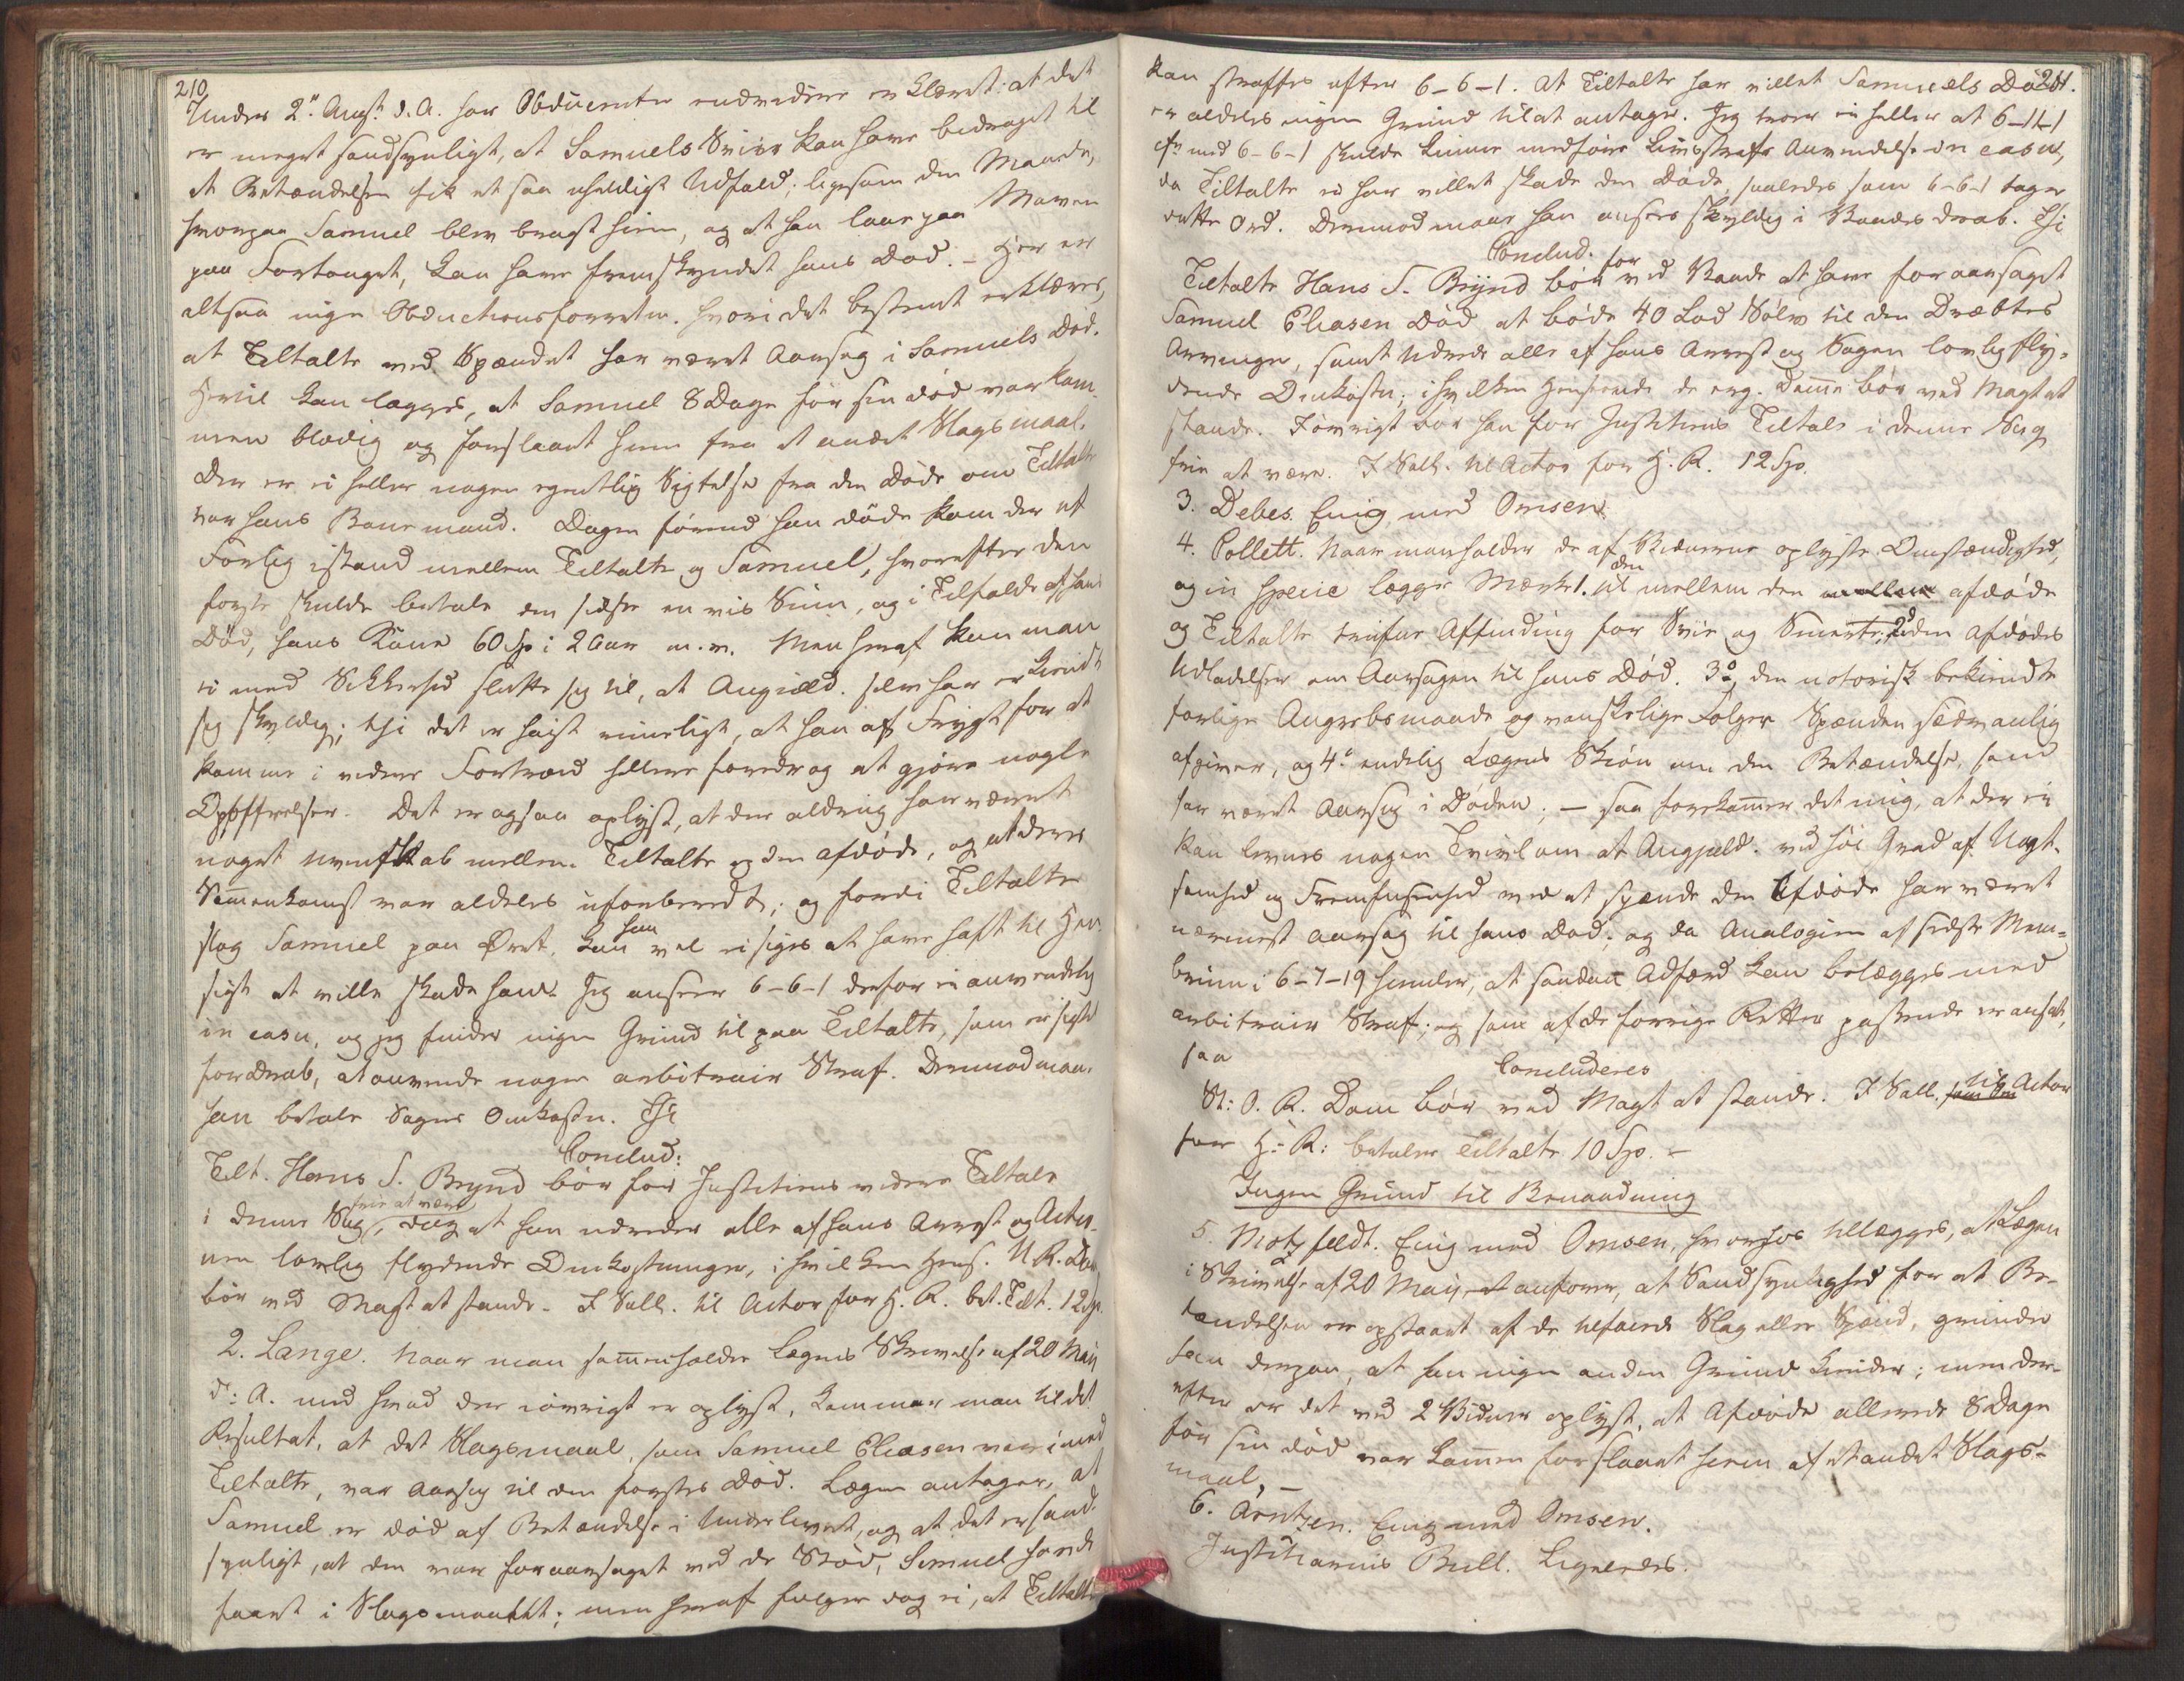 210.
Under 2den Augst. d. A. har Obducenter endvidere erklæret: at det
er meget sandsynligt, at Samuels Sviir kan have bidraget til
at Betændelsen fik et saa uheldigt Udfald; ligesom den Maade,
hvorpaa Samuel blev bragt hiem, og at han laae paa Maven
paa Fortouget, kan have fremskyndet hans Død. – Her er
altsaa ingen Obductionsforretn. hvori det bestemt erklæres,
at Tiltalte ved Spændet har været Aarsag i Samuels Død.
Hertil kan lægges, at Samuel 8 Dage før sin død var kom-
men blodig og forslaaet hiem fra et andet Slagsmaal.
Der er ei heller nogen egentlig Sigtelse fra den Døde om Tiltalte
var hans Banemand. Dagen førend han døde kom der et
Forlig istand mellem Tiltalte og Samuel, hvorefter den
første skulde betale den sidste en vis Sum, og i Tilfælde af hans
Død, hans Kone 60 Sp i 2 Aar m. v. Men heraf kan man
ei med Sikkerhed slutte sig til, at Angield. selv har erkiendt
sig skyldig; thi det er høist rimeligt, at han af Frygt for at
komme i videre Fortræd hellere foredrog at gjøre nogle
Opoffrelser. Det er ogsaa oplyst, at der aldrig har været
noget uvenskab mellem Tiltalte og den afdøde, og at deres
Sammenkomst var aldeles uforberedt; og fordi Tiltalte
slog Samuel paa Øret, kan han vel ei siges at have haft til Hen-
sigt at ville skade ham. Jeg anseer 6-6-1 derfor ei anvendelig
in casu, og jeg finder ingen Grund til paa Tiltalte, som ei sigtet
for drab, at anvende nogen arbitrair Straf. Derimod maa
han betale Sagens Omkostn. Thi
Conclud:
Tilt. Hans S. Brynd bør for Justitiens videre Tiltale
i denne Sag frie at være, dog at han udreder alle af hans Arrest og Actio-
nen lovlig flydende Omkostninger, i hvilken Hens. U. R. Dom
bør ved Magt at stande. I Sall. til Actor for H. R. bet. Tilt. 12 Sp.
2. Lange. Naar man sammenholder Lægens Skrivelse af 20 Maij
d: A. med hvad der iøvrigt er oplyst, kommer man til det
Resultat, at det Slagsmaal, som Samuel Eliasen var i med
Tiltalte, var Aarsag til den førstes Død. Lægen antager, at
Samuel er død af Betændelse i Underlivet, og at det er sand-
synligt, at den var foraarsaget ved de Stød, Samuel havde
faaet i Slagsmaalet; men heraf følger dog ei, at Tiltalte
211.
kan straffes efter 6-6-1. At Tiltalte har villet Samuels Død
er aldeles ingen Grund til at antage. Jeg troer ei heller at 6-11-1
cfr. med 6-6-1 skulde kunne medføre Livsstrafs Anvendelse in casu,
da Tiltalte ei har villet skade den Døde, saaledes som 6-6-1 tager
dette Ord. Derimod maae han ansees skyldig i Vaades drab. Thi
Conclud.
Tiltalte Hans S. Brynd bør for ved Vaade at have foraarsaget
Samuel Eliasen Død at bøde 40 Lod Sølv til den Dræbtes
Arvinger, samt udrede alle af hans Arrest og Sagen lovlig fly-
dende Omkostn; i hvilken Henseende de erg. Domme bør ved Magt at
stande. Iøvrigt bør han for Justitiens Tiltale i denne Sag
frie at være. I Sall. til Actor for H. R. 12 Sp.
3. Debes. Enig med Omsen.
4. Collett. Naar man holder de af Vidnerne oplyste Omstændighed.,
og in specie lægger Mærke 1. til den mellem den mellem afdøde
og Tiltalte trufne Affinding for Svie og Smerte; 2° den afdødes
Udladelser om Aarsagen til hans Død. 3° den notorisk bekiendte
farlige Angrebsmaade og vanskelige Følger Spænden sædvanlig
afgiver, og 4° endelig Lægens Skiøn om den Betændelse, som
har været Aarsag i Døden; – saa forekommer det mig, at der ei
kan levnes nogen Tvivl om at Angjeld. ved høi Grad af Uagt-
somhed og Fremfusenhed ved at spænde den Afdøde har været
nærmest aarsag til hans Død. og da Analogien af sidste Mem-
brum i 6-7-19 hiemler, at saadan Adfærd kan belægges med
arbitrair Straf; og som af de forrige Retter passende er ansat,
saa
Concluderes
St: O. R. Dom bør ved Magt at stande. I Sall. til Actor
for H: R: betaler Tiltalte 10 Sp. –
Ingen Grund til Benaadning
5. Motzfeldt. Enig med Omsen, hvorhos tillægges, at Lægen
i Skrivelse af 20 Maij anfører, at Sandsynlighed for at Be-
tændelsen er opstaaet af de tilføiede Slag eller Spænd, grunder
han derpaa, at han ingen anden Grund kiender; men der-
efter er det ved 2 Vidner oplyst, at Afdøde allerede 8 Dage
før sin død var kommen forslaaet hiem af et andet Slags-
maal, –
6. Arntzen. Enig med Omsen.
Justitiarius Bull. Ligeledes.